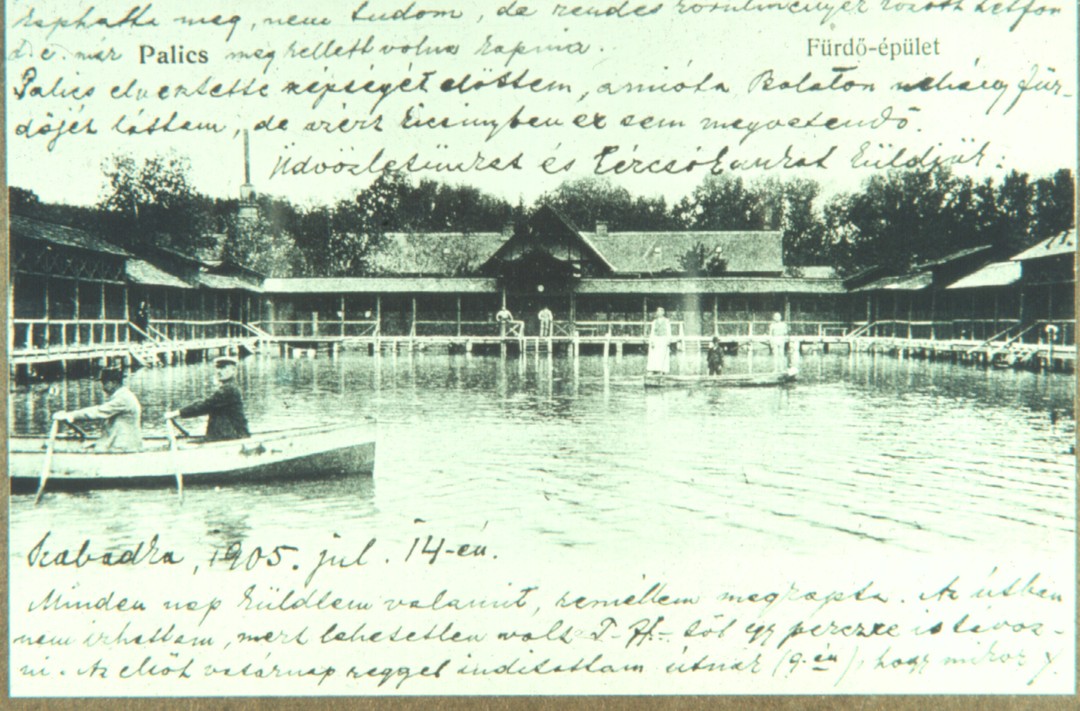 kaphatta meg, nem tudom, de rendes körülmények között hétfőn
d.e. már meg kellett volna kapnia.
Palics
Fürdő-épület
Palics elvesztette szépségét előttem, amióta Balaton néhány für-
dőjét láttam, de azért kicsinyben ez sem megvetendő.
Üdvözletünket és kézcsókunkat küldjük:
Szabadka, 1905. jul. 14-én.
Minden nap küldtem valamit, remélem megkapta. Az útban
nem írhattam, mert lehetetlen volt T- től egy perczre is távoz-
ni. Az elsőt vasárnap reggel indítottam útnak (9-én), hogy mikor